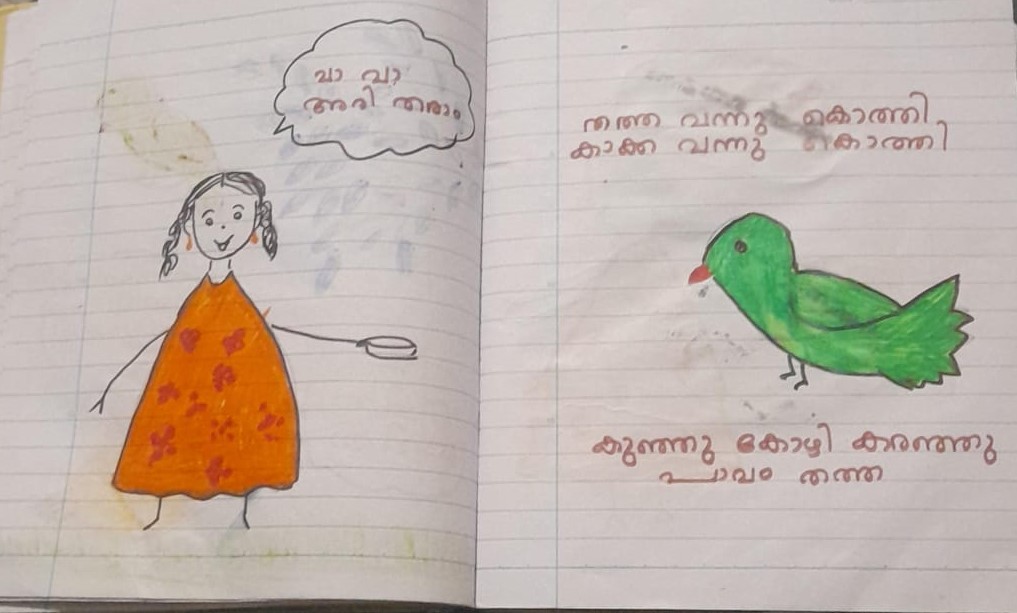 വാ വാ
അരി തരാം
തത്ത വന്നു കൊത്തി
കാക്ക വന്നു കൊത്തി
കുഞ്ഞു കോഴി കരഞ്ഞു
പാവം തത്ത